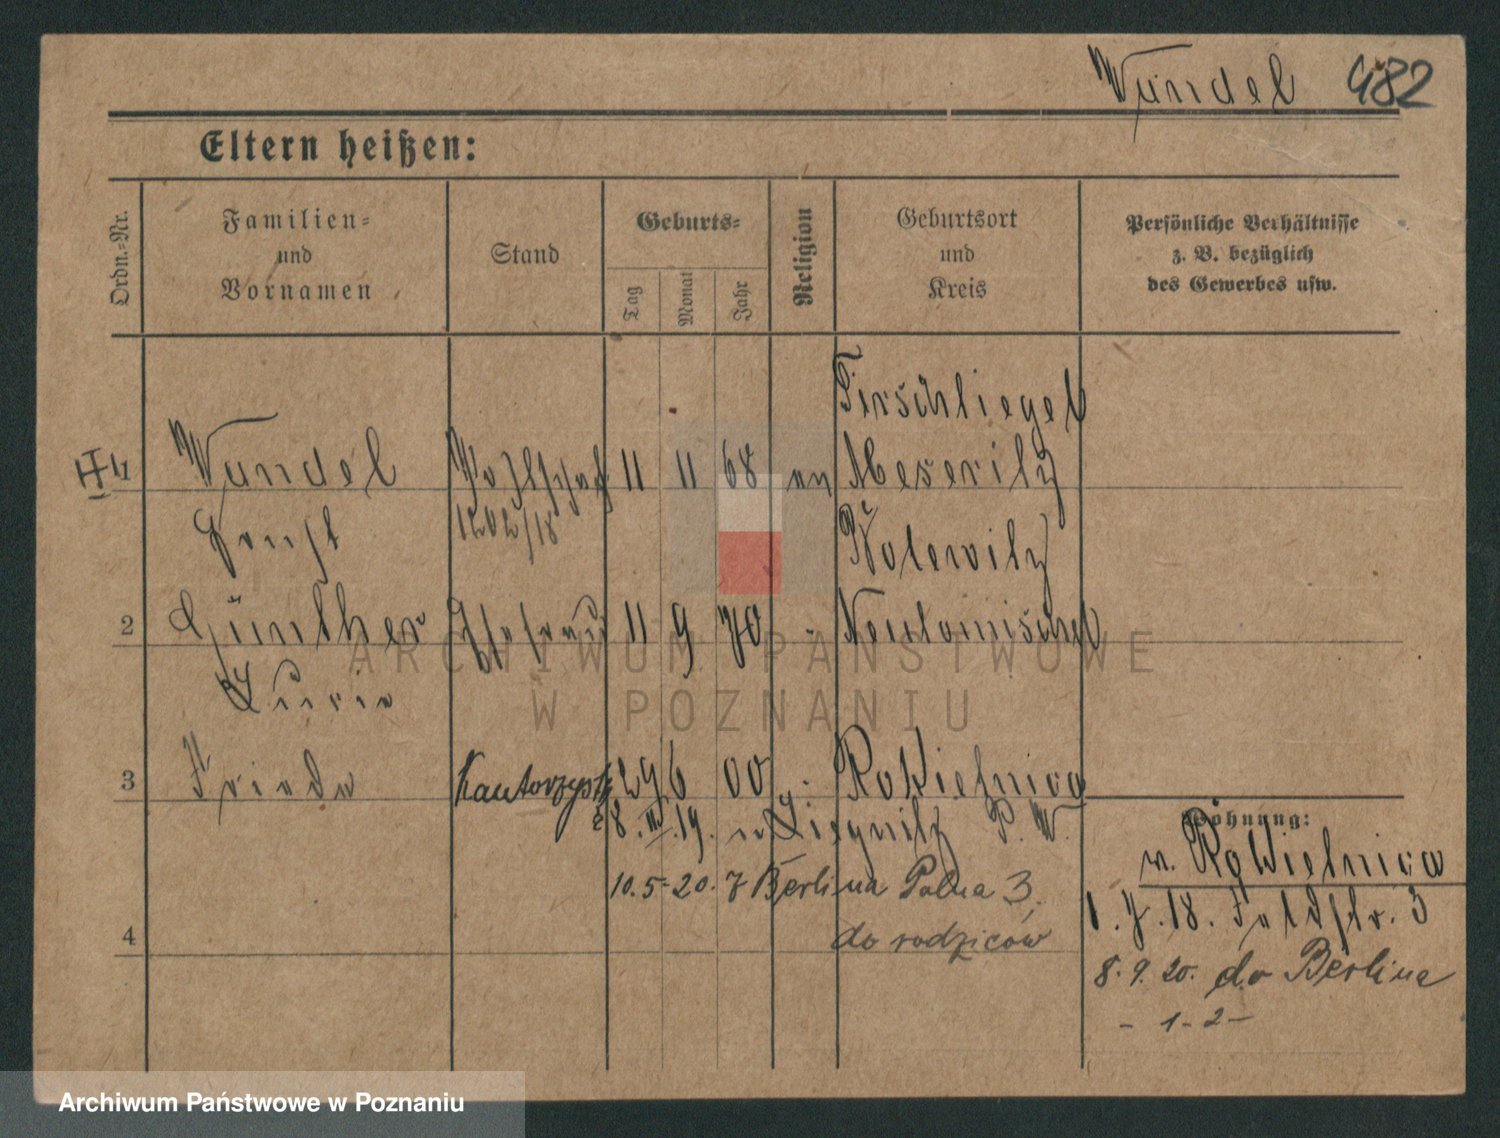 Wundel 482
Eltern heißen:
Ordn.-Nr.
Familien-
und
Vornamen
Stand
Geburts-
Tag
Monat
Jahr
Religion
Geburtsort
und
Kreis
Persönliche Verhältnisse
z. B. bezüglich
des Gewerbes usw.
Tirschtiegel
1 Wundel 11 11 68 Meseritz
Ernst 1202/18
2 Günther 11 9 70 Neutomischel
3 Frieda Kantorzystka 29 6 00 Rokietnica
8. III. 19. Liegnitz P. W.
Wohnung:
w. Rokietnica
10.5.20. z Berlina Polna 3.
1.7.18. Feldstr. 3
4 do rodziców
8.9.20. do Berlina
- 1-2-
ARCHIWUM PAŃSTWOWE
W POZNANIU
Archiwum Państwowe w Poznaniu